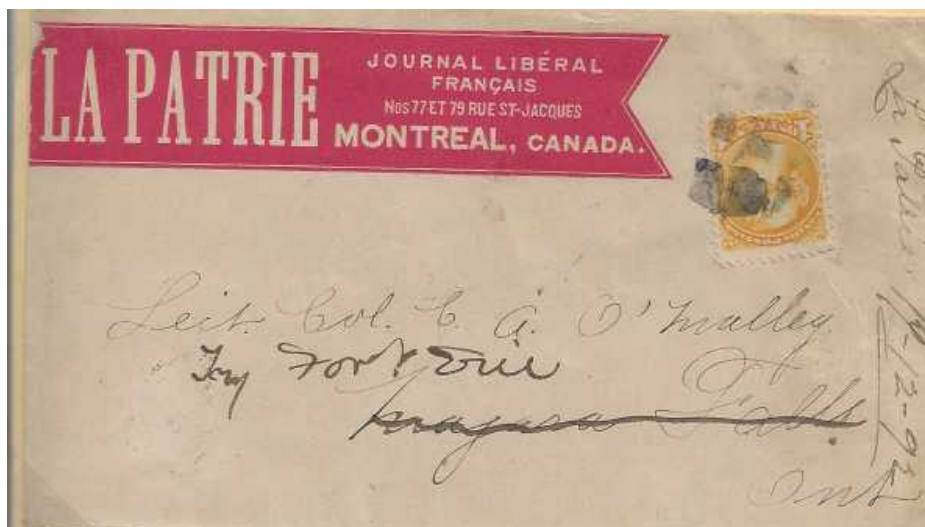 LA PATRIE
JOURNAL LIBÉRAL
FRANÇAIS
Nos 77 ET 79 RUE ST-JACQUES
MONTREAL, CANADA.
Leit. Col. C. A. O'Malley.
Try Fort Erie
Niagara Falls.
Ont
La Patrie. 12-93